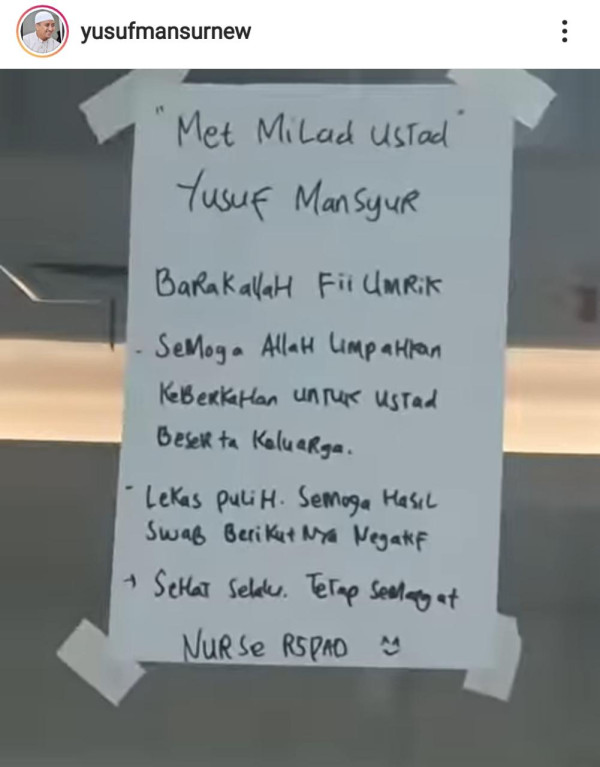 yusufmansurnew
"Met Milad Ustad"
Yusuf Mansyur
Barakallah Fii Umrik
- Semoga Allah Limpahkan
Keberkahan untuk Ustad
Beserta Keluarga.
- Lekas pulih. Semoga Hasil
Swab Berikutnya Negatif
→ Sehat Selalu. Tetap Semangat
Nurse RSPAD